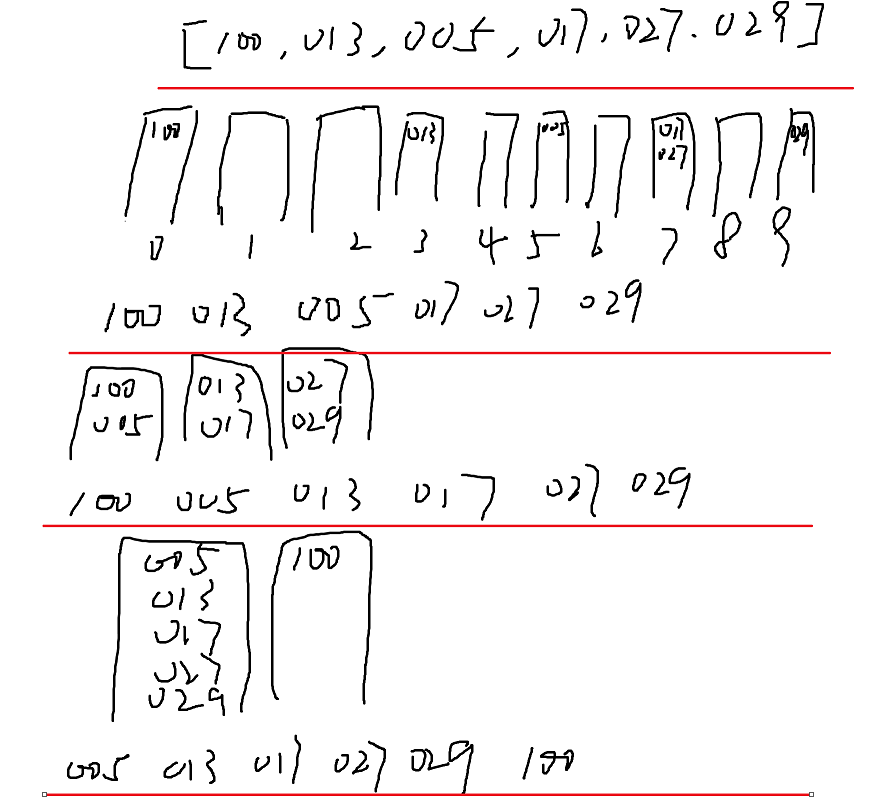 [100, 013, 005, 017, 027. 029]
100 013 005 017 029
027
0 1 2 3 4 5 6 7 8 9
100 013 005 017 027 029
100 013 027
005 017 029
100 005 013 017 027 029
005 100
013
017
027
029
005 013 017 027 029 100